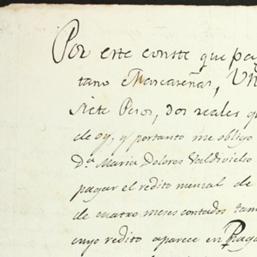 Por este conste que pa
tano Mascareñas, Un
siete Pesos, dos reales q
de oy, y portanto me obligo
Dᵃ Maria Dolores Valdivielso
pagar el redito mensal de
de cuatro meses contados tam
cuyo redito aparece en Paga